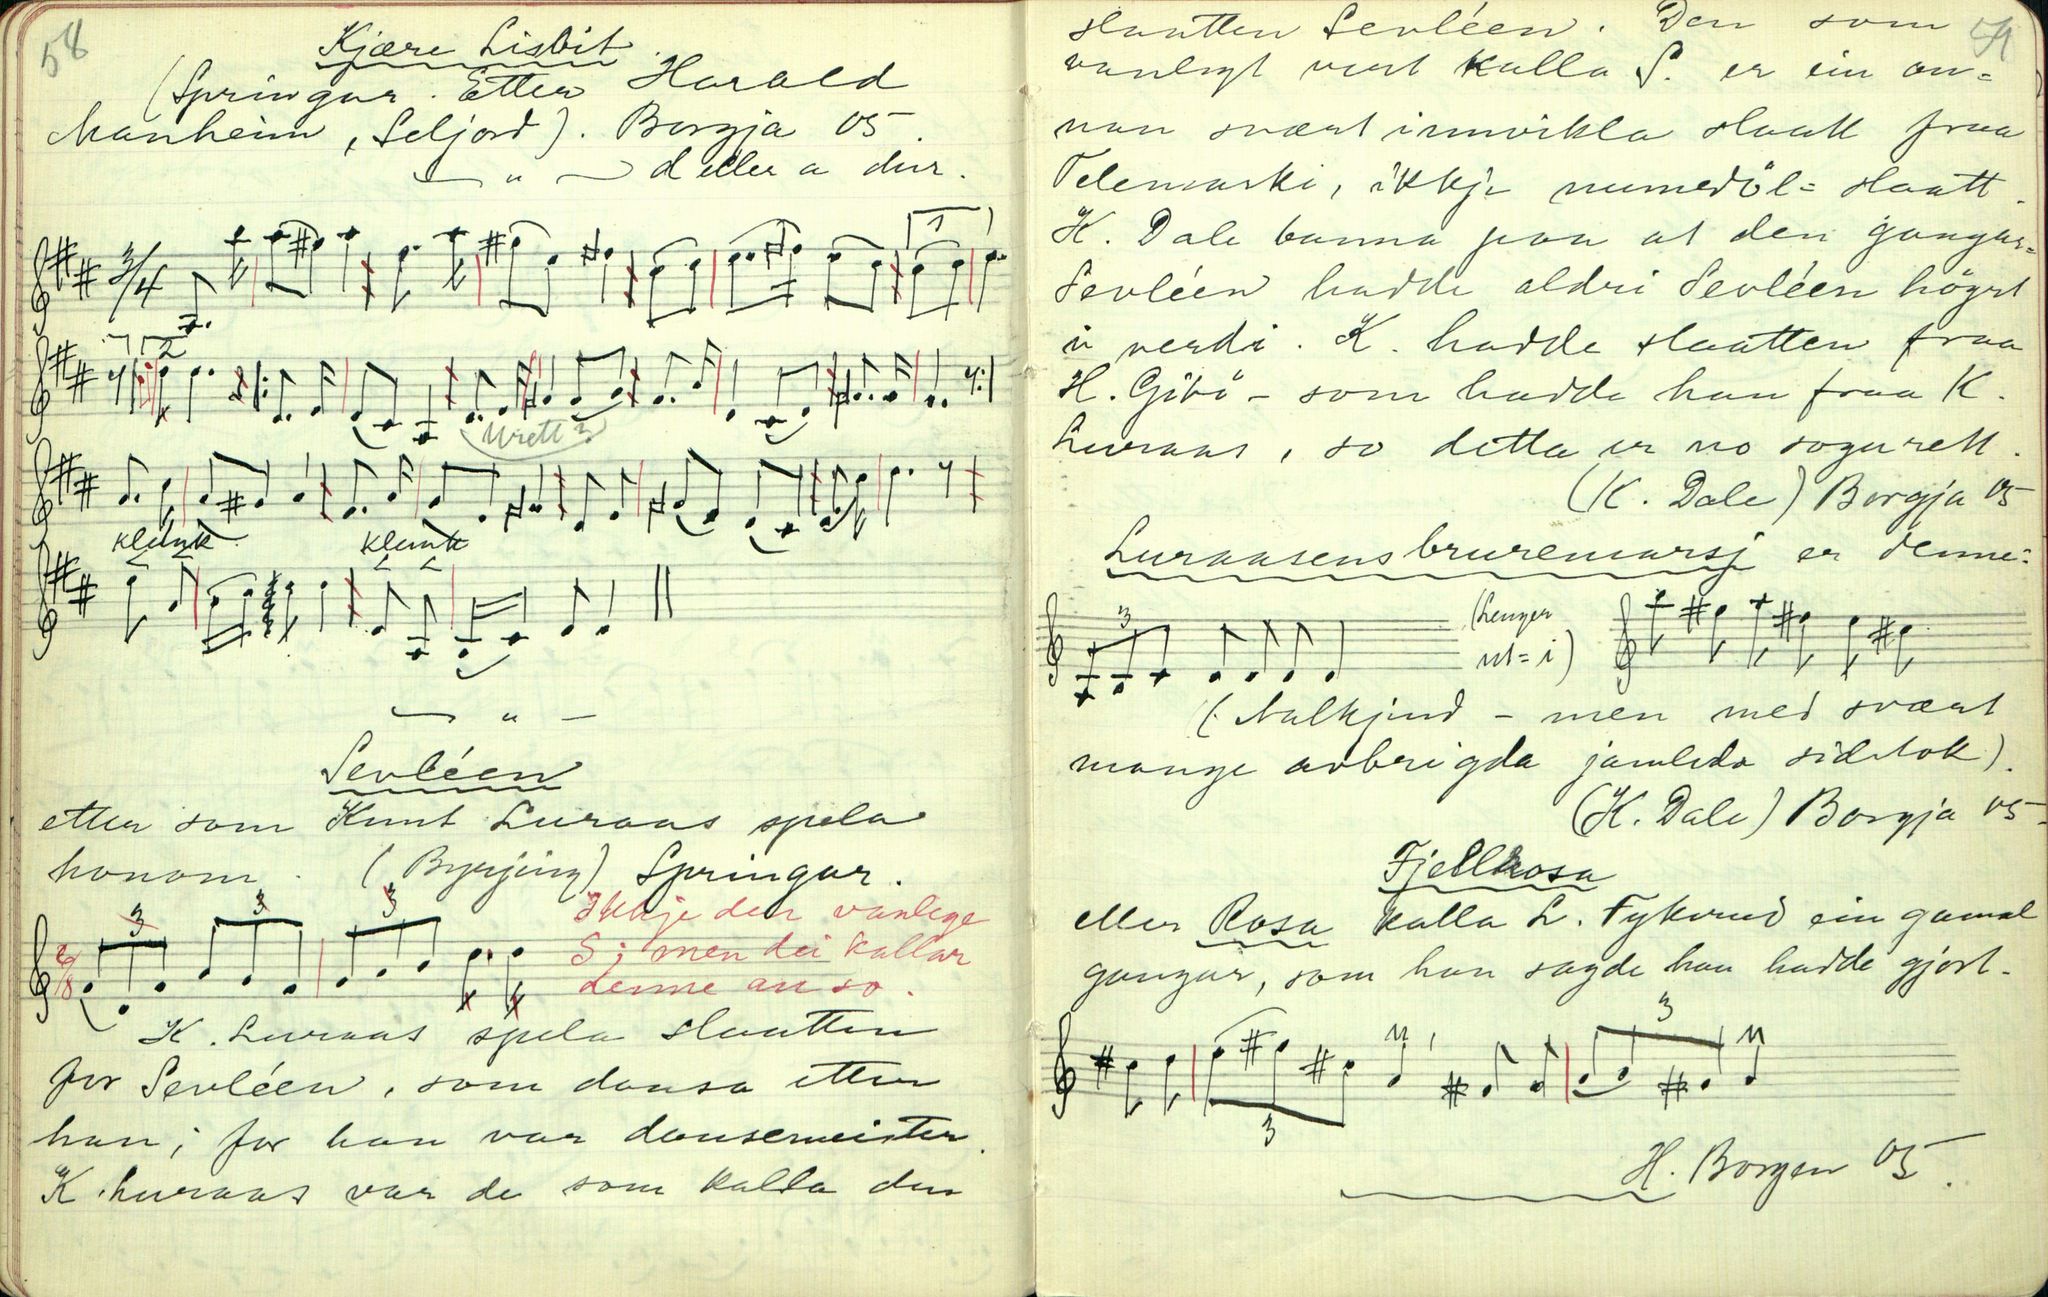 58
Kjære Lisbit.
(Springar. Etter Harald
Manheim, Seljord). Borgja 05.
— " — d eller a dur.
3/4
1
2
Urett?
klunk klunk
— " —
Sevléen
etter som Knut Luraas spela
honom. (Byrjing) Springar.
3 3 3
Ikkje den vanlege
S; men dei kallar
denne au so.
K. Luraas spela slaatten
for Sevléen, som dansa etter
han; for han var dansemeister.
K. Luraas var de som kalla den
slaatten Sevléen. Den som
vanlegt vert kalla S. er ein an-
nan svært innvikla slaatt fraa
Telemarki, ikkje numedöl-slaatt.
K. Dale banna paa at den gangar-
Sevléen hadde aldri Sevléen höyrt
i verdi. K. hadde slaatten fraa
H. Gibö - som hadde han fraa K.
Luraas, so detta er no sogurett.
(K. Dale) Borgja 05
Luraasens bruremarsj er denne:
3
(Lenger
ut = i)
(Nalkjend - men med svært
mange avbrigda jamleda sidstok).
(K. Dale) Borgja 05
Fjellrosa
eller Rosa kalla L. Fykerud ein gamal
gangar, som han sagde han hadde gjort.
3 3
H. Borgen 05.